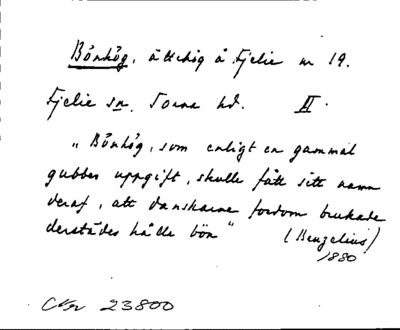 Bönhög, ättehög å Fjelie nr 19.
Fjelie sn. Torna hd. II.
"Bönhög, som enligt en gammal
gubbes uppgift, skulle fått sitt namn
deraf, att danskarne fordom brukade
derstädes hålla bön" (Benzelius)
1880
23800